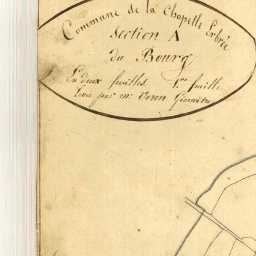 Commune de la Chapelle Erbrée
Section A
du Bourg
En deux feuilles 1re feuille
Levée par Mr